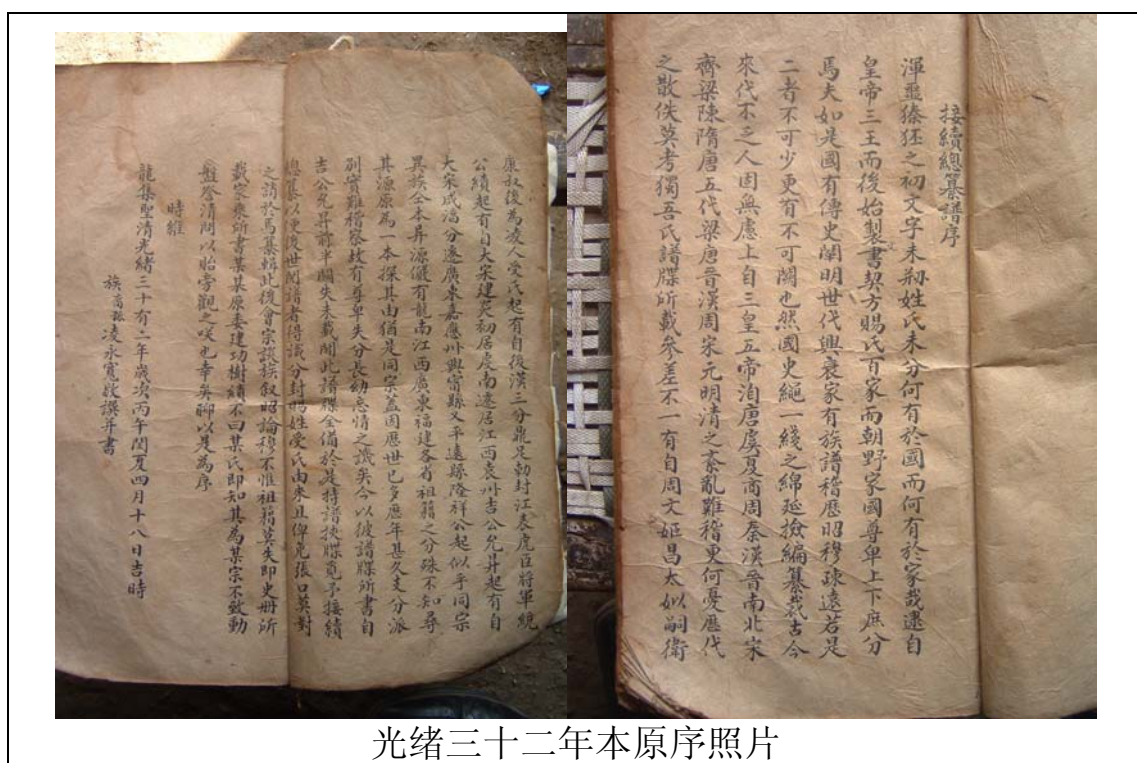 接續總纂譜序
渾噩獉狉之初文字未刱姓氏未分何有於國而何有於家哉逮自
皇帝三王而後始製書契方賜氏百家而朝野家國尊卑上下庶分
焉夫如是國有傳史闡明世代興衰家有族譜稽歷昭穆疎遠若是
二者不可少更有不可闕也然國史繩一綫之綿延撿編纂哉古今
來代不乏人固無慮上自三皇五帝洎唐虞夏商周秦漢晉南北宋
齊梁陳隋唐五代梁唐晉漢周宋元明清之紊亂難稽更何憂歷代
之散佚莫考獨吾氏譜牒所載參差不一有自周文姬昌太姒嗣衛
康叔後為凌人受氏起有自後漢三分鼎足勅封江表虎臣將軍統
公績起有自大宋建炎初居虔南遷居江西袁州吉公允昇起有自
大宋咸淳分遷廣東嘉應州興甯縣又平遠縣隆祥公起似乎同宗
異族仝本异源儼有龍南江西廣東福建各省祖籍之分殊不知尋
其源原為一本探其由猶是同宗蓋因歷世已多歷年甚久支分派
別實難稽察故有尊卑失分長幼忘情之譏矣今以彼譜牒所書自
吉公允昇前半闕失未載閱此譜牒全備於是持譜挾牒覓予接續
總纂以便後世閱譜者得識分封賜姓受氏由來且俾免張口莫對
之誚於焉纂輯此後會宗談族叙昭論穆不惟祖籍莫失即史册所
載宗所書某某原委建功樹績不曰某氏即知其為某宗不致動
啓清聞以貽旁觀之咲也幸矣聊以是為序
時維
龍集聖清光緒三十有二年歲次丙午閏夏四月十八日吉時
族裔孫凌永寬敬撰并書
光绪三十二年本原序照片